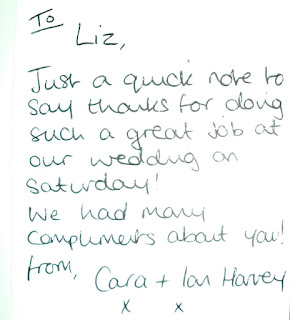 To
Liz,
Just a quick note to
say thanks for doing
such a great job at
our wedding on
Saturday!
We had many
compliments about you!
from, Cara + Ian Harvey
x x